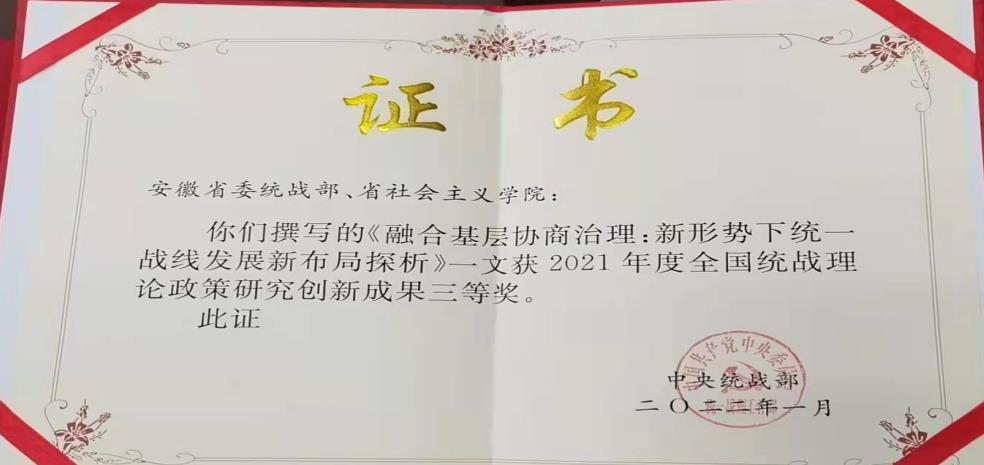 证书
安徽省委统战部、省社会主义学院：
你们撰写的《融合基层协商治理：新形势下统一
战线发展新布局探析》一文获 2021 年度全国统战理
论政策研究创新成果三等奖。
此证
中国共产党中央委员会
中央统战部
二〇二二年一月